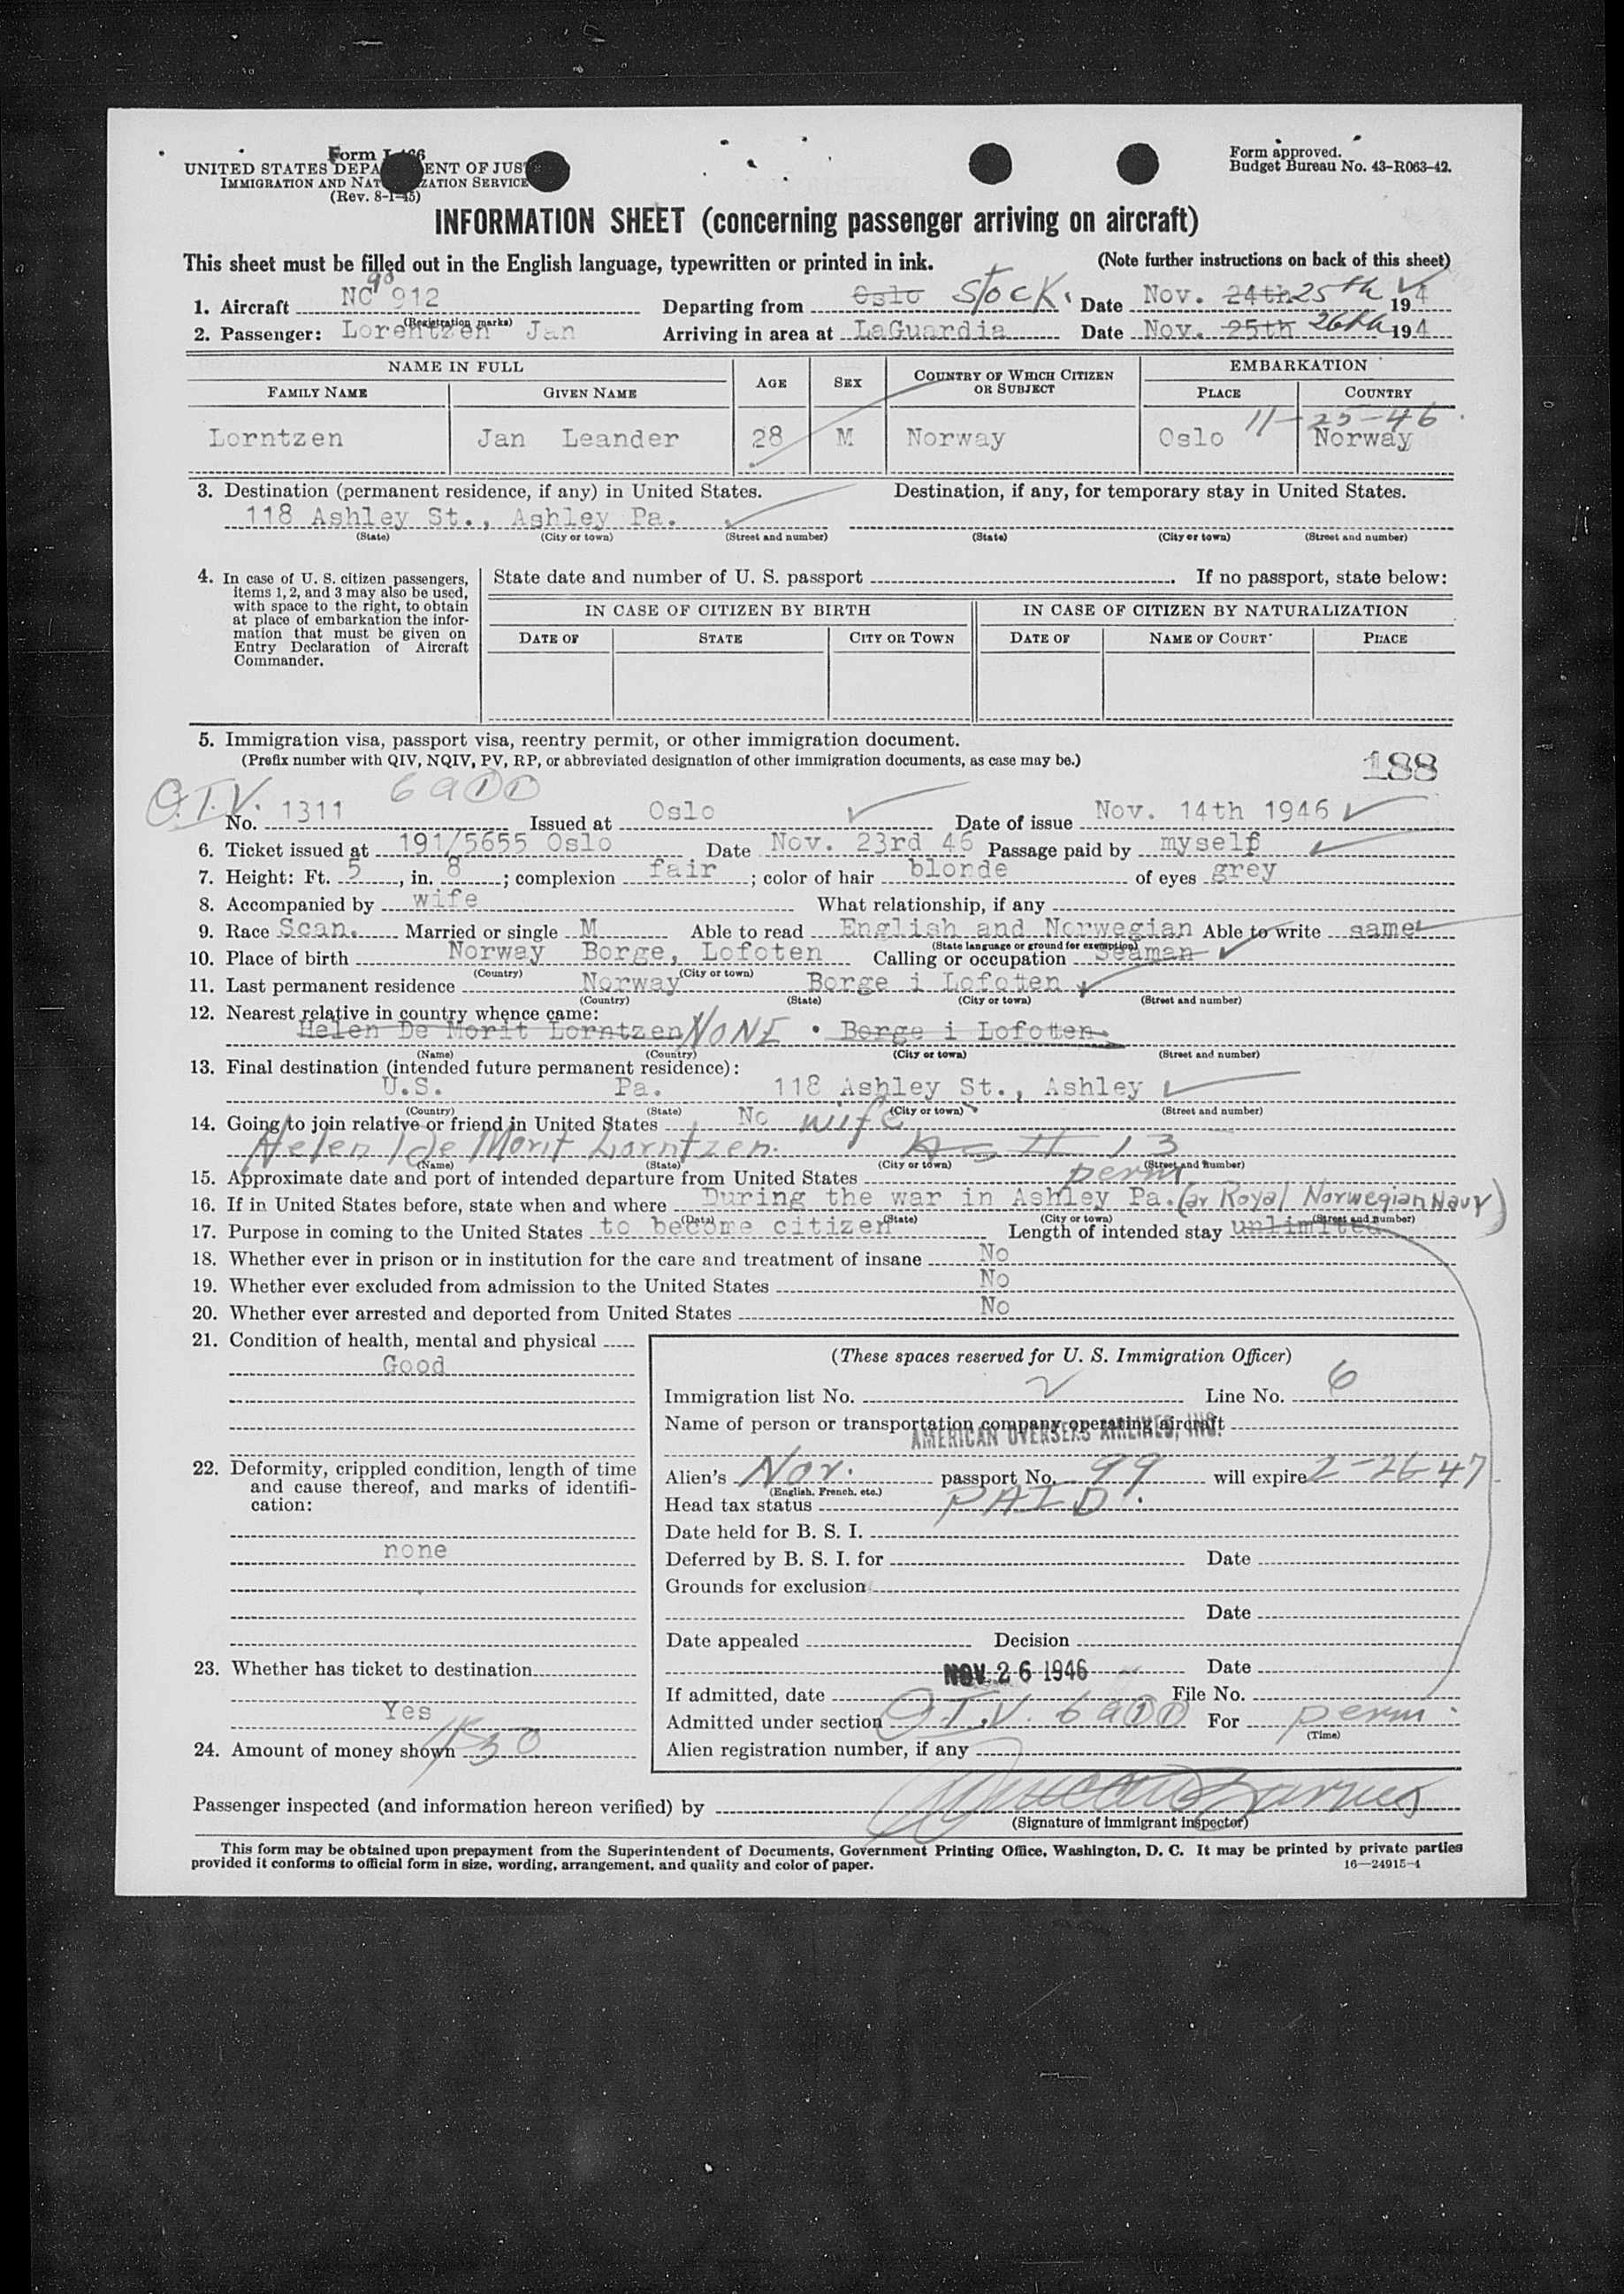 Form I-466
UNITED STATES DEPARTMENT OF JUSTICE
IMMIGRATION AND NATURALIZATION SERVICE
(Rev. 8-1-45)
Form approved.
Budget Bureau No. 43-R063-42.
INFORMATION SHEET (concerning passenger arriving on aircraft)
This sheet must be filled out in the English language, typewritten or printed in ink. (Note further instructions on back of this sheet)
1. Aircraft NC 90 912 Departing from Oslo Stock. Date Nov. 24th 25th 194
(Registration marks)
2. Passenger: Lorentzen Jan Arriving in area at LaGuardia Date Nov. 25th 26th 194
NAME IN FULL AGE SEX COUNTRY OF WHICH CITIZEN OR SUBJECT EMBARKATION
FAMILY NAME GIVEN NAME PLACE COUNTRY
11-25-46
Lorntzen Jan Leander 28 M Norway Oslo Norway
3. Destination (permanent residence, if any) in United States. Destination, if any, for temporary stay in United States.
118 Ashley St., Ashley Pa.
(State) (City or town) (Street and number) (State) (City or town) (Street and number)
4. In case of U. S. citizen passengers, items 1, 2, and 3 may also be used, with space to the right, to obtain at place of embarkation the information that must be given on Entry Declaration of Aircraft Commander.
State date and number of U. S. passport . If no passport, state below:
IN CASE OF CITIZEN BY BIRTH IN CASE OF CITIZEN BY NATURALIZATION
DATE OF STATE CITY OR TOWN DATE OF NAME OF COURT PLACE
5. Immigration visa, passport visa, reentry permit, or other immigration document.
(Prefix number with QIV, NQIV, PV, RP, or abbreviated designation of other immigration documents, as case may be.)
188
Q.I.V. 6a(1)(1)
No. 1311 Issued at Oslo Date of issue Nov. 14th 1946
6. Ticket issued at 191/5655 Oslo Date Nov. 23rd 46 Passage paid by myself
7. Height: Ft. 5, in. 8; complexion fair; color of hair blonde of eyes grey
8. Accompanied by wife What relationship, if any
9. Race Scan. Married or single M Able to read English and Norwegian Able to write same
(State language or ground for exemption)
10. Place of birth Norway Borge, Lofoten Calling or occupation Seaman
(Country) (City or town)
11. Last permanent residence Norway Borge i Lofotten
(Country) (State) (City or town) (Street and number)
12. Nearest relative in country whence came:
Helen De Morit Lorntzen NONE Borge i Lofotten
(Name) (Country) (City or town) (Street and number)
13. Final destination (intended future permanent residence):
U.S. Pa. 118 Ashley St., Ashley
(Country) (State) (City or town) (Street and number)
14. Going to join relative or friend in United States No wife
Helen De Morit Lorntzen. As # 13
(Name) (State) (City or town) (Street and number)
15. Approximate date and port of intended departure from United States perm
16. If in United States before, state when and where During the war in Ashley Pa. (ar Royal Norwegian Navy)
(Date) (State) (City or town) (Street and number)
17. Purpose in coming to the United States to become citizen Length of intended stay unlimited
18. Whether ever in prison or in institution for the care and treatment of insane No
19. Whether ever excluded from admission to the United States No
20. Whether ever arrested and deported from United States No
21. Condition of health, mental and physical
Good
22. Deformity, crippled condition, length of time and cause thereof, and marks of identification:
none
23. Whether has ticket to destination
Yes
24. Amount of money shown $30
(These spaces reserved for U. S. Immigration Officer)
Immigration list No. 2 Line No. 6
Name of person or transportation company operating aircraft
AMERICAN OVERSEAS AIRLINES, INC.
Alien's Nor. passport No. 99 will expire 2-26-47
(English, French, etc.)
Head tax status PAID.
Date held for B. S. I.
Deferred by B. S. I. for Date
Grounds for exclusion
Date
Date appealed Decision
NOV 26 1946 Date
If admitted, date File No.
Admitted under section Q.I.V. 6a(1)(1) For perm.
(Time)
Alien registration number, if any
Passenger inspected (and information hereon verified) by
(Signature of immigrant inspector)
This form may be obtained upon prepayment from the Superintendent of Documents, Government Printing Office, Washington, D. C. It may be printed by private parties
provided it conforms to official form in size, wording, arrangement, and quality and color of paper. 16—24915-4